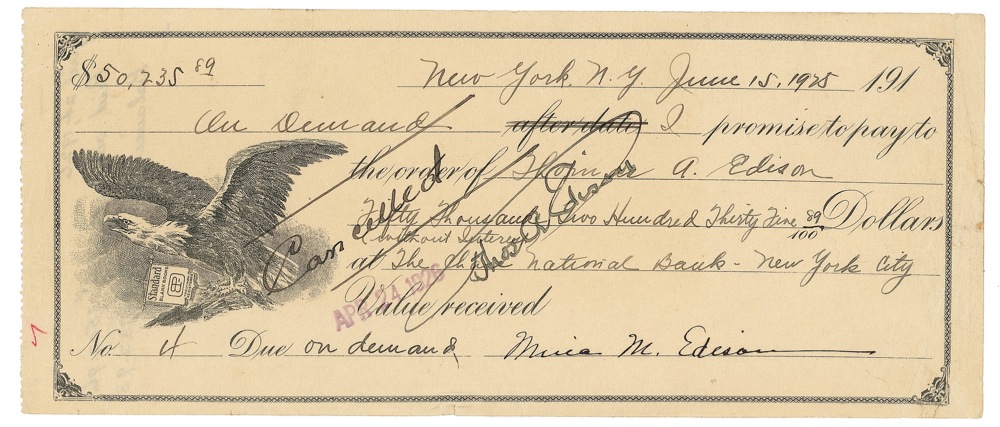 $50,235 89
New York. N. Y. June 15, 1925 191
On Demand after date I promise to pay to
the order of Thomas A. Edison
Fifty Thousand Two Hundred Thirty Five 89/100 Dollars
(without Interest
at The Chase National Bank - New York City
Value received
No. 4 Due on demand Mina M. Edison
Cancelled
Thos A Edison
APR 24 1926
Standard
BLANK BOOKS